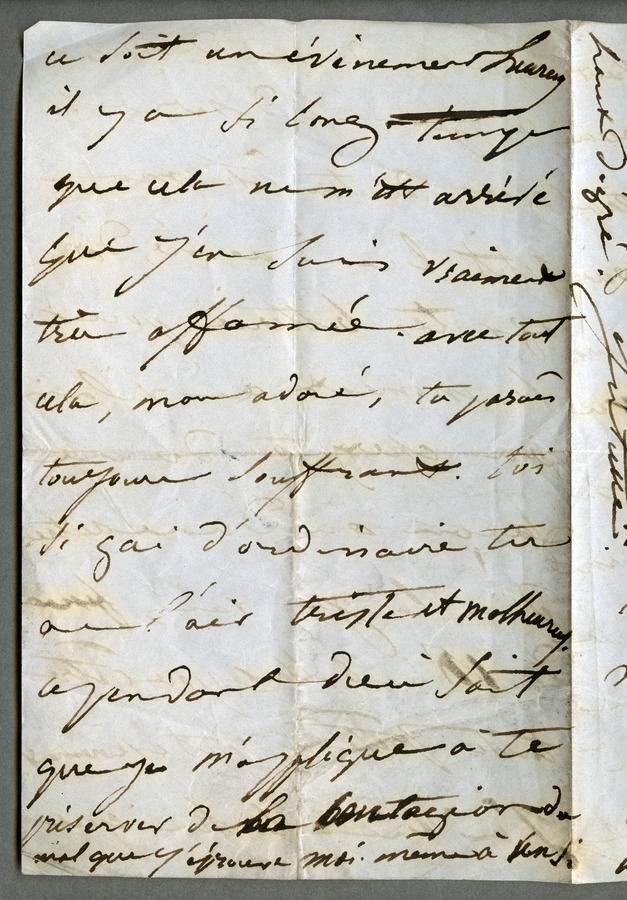 ce soit un événement heureux
il y a si longtemps
que cela ne m'est arrivé
que j'en suis vraiment
très affamée. avec tout
cela, mon adoré, tu parais
toujours souffrant. toi
si gai d'ordinaire tu
as l'air triste et malheureux.
cependant dieu sait
que je m'applique à te
préserver de la contagion du
mal que j'éprouve moi-même à un si
haut degré.
Juliette